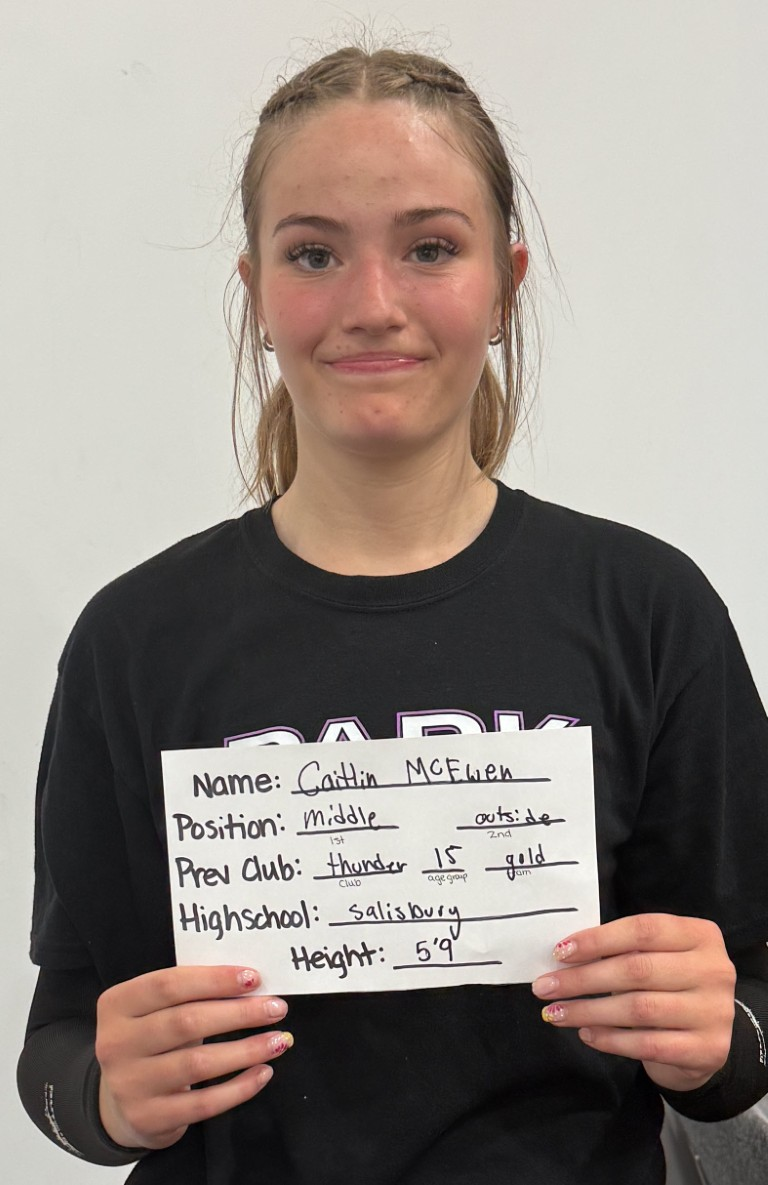 PARK
Name: Caitlin McEwen
Position: middle outside
1st 2nd
Prev Club: thunder 15 gold
Club age group am
Highschool: salisbury
Height: 5'9